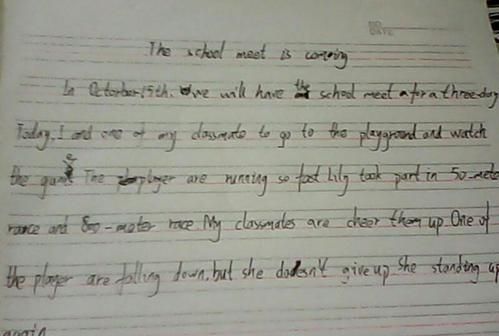 NO.
DATE
The school meet is comming
In Octorber 15th. we will have the school meet a for a three-day
Today, I and one of my classmate to go to the playground and watch
the game The player are running so fast Lily took part in 50-mete
raace and 800-meter race. My classmates are cheer them up. One of
the player are falling down, but she doesn't give up. She standing up
again